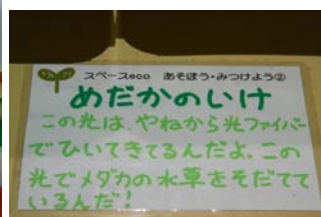 スペースeco あそぼう・みつけよう②
めだかのいけ
この光は、やねから光ファイバー
でひいてきてるんだよ。この
光でメダカの水草をそだてて
いるんだ!